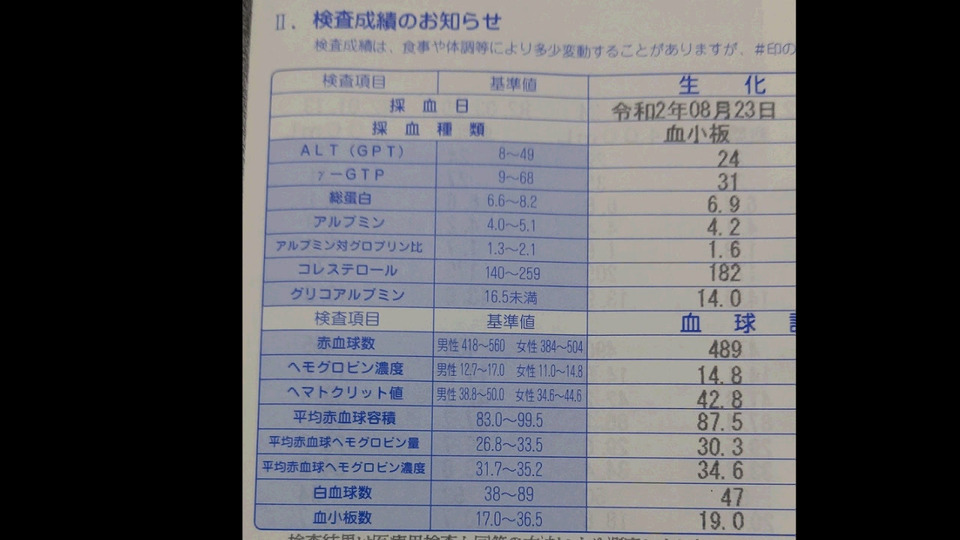 Ⅱ．検査成績のお知らせ
検査成績は、食事や体調等により多少変動することがありますが、＃印の
検査項目 基準値 生 化
採血日 令和2年08月23日
採血種類 血小板
ALT（GPT） 8～49 24
γ－GTP 9～68 31
総蛋白 6.6～8.2 6.9
アルブミン 4.0～5.1 4.2
アルブミン対グロブリン比 1.3～2.1 1.6
コレステロール 140～259 182
グリコアルブミン 16.5未満 14.0
検査項目 基準値 血 球
赤血球数 男性 418～560 女性 384～504 489
ヘモグロビン濃度 男性 12.7～17.0 女性 11.0～14.8 14.8
ヘマトクリット値 男性 38.8～50.0 女性 34.6～44.6 42.8
平均赤血球容積 83.0～99.5 87.5
平均赤血球ヘモグロビン量 26.8～33.5 30.3
平均赤血球ヘモグロビン濃度 31.7～35.2 34.6
白血球数 38～89 47
血小板数 17.0～36.5 19.0